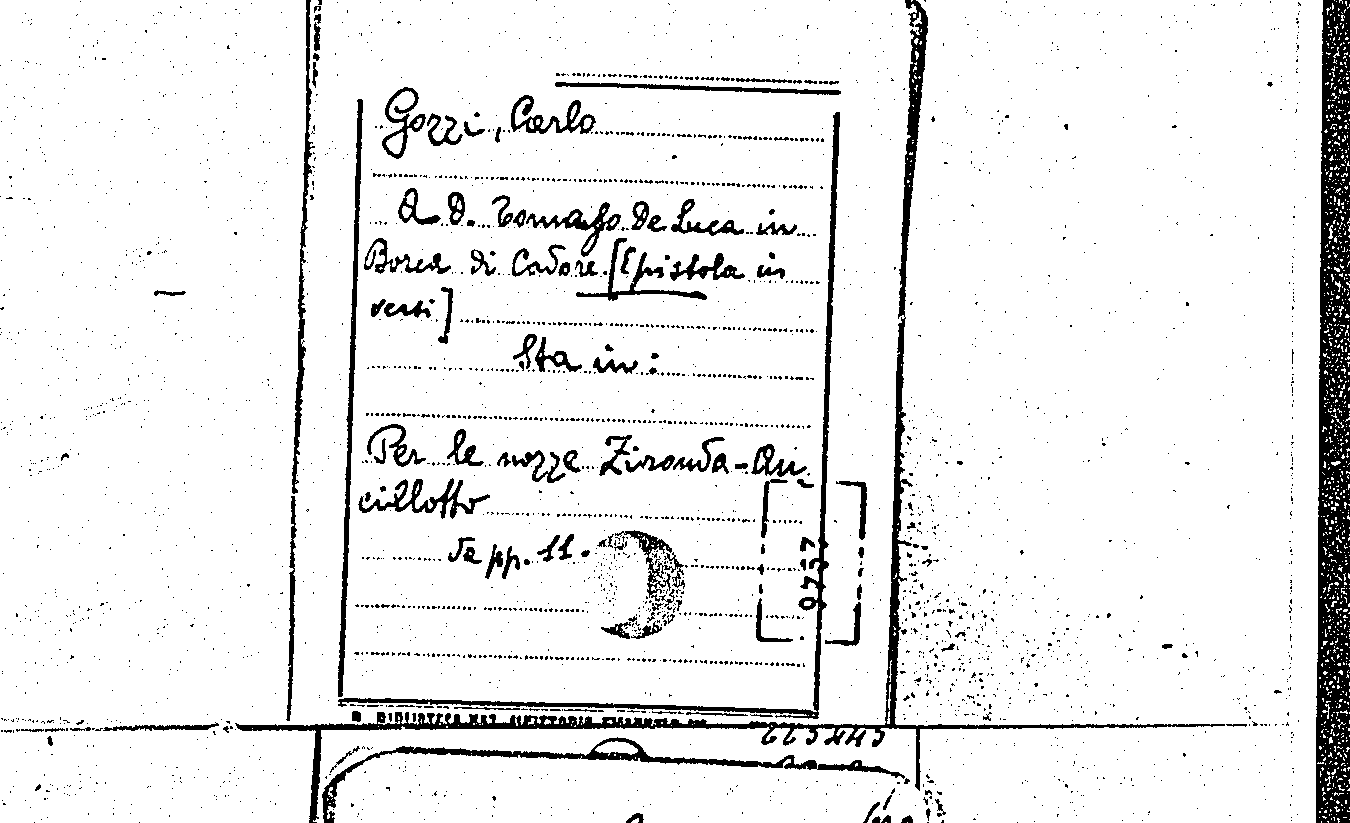 Gozzi, Carlo
A D. Tomaso De Luca in
Borca di Cadore [Epistola in
versi]
Sta in:
Per le nozze Zironda-An
cillotto
da pp. 11.
BIBLIOTECA NAZ. VITTORIO EMANUELE